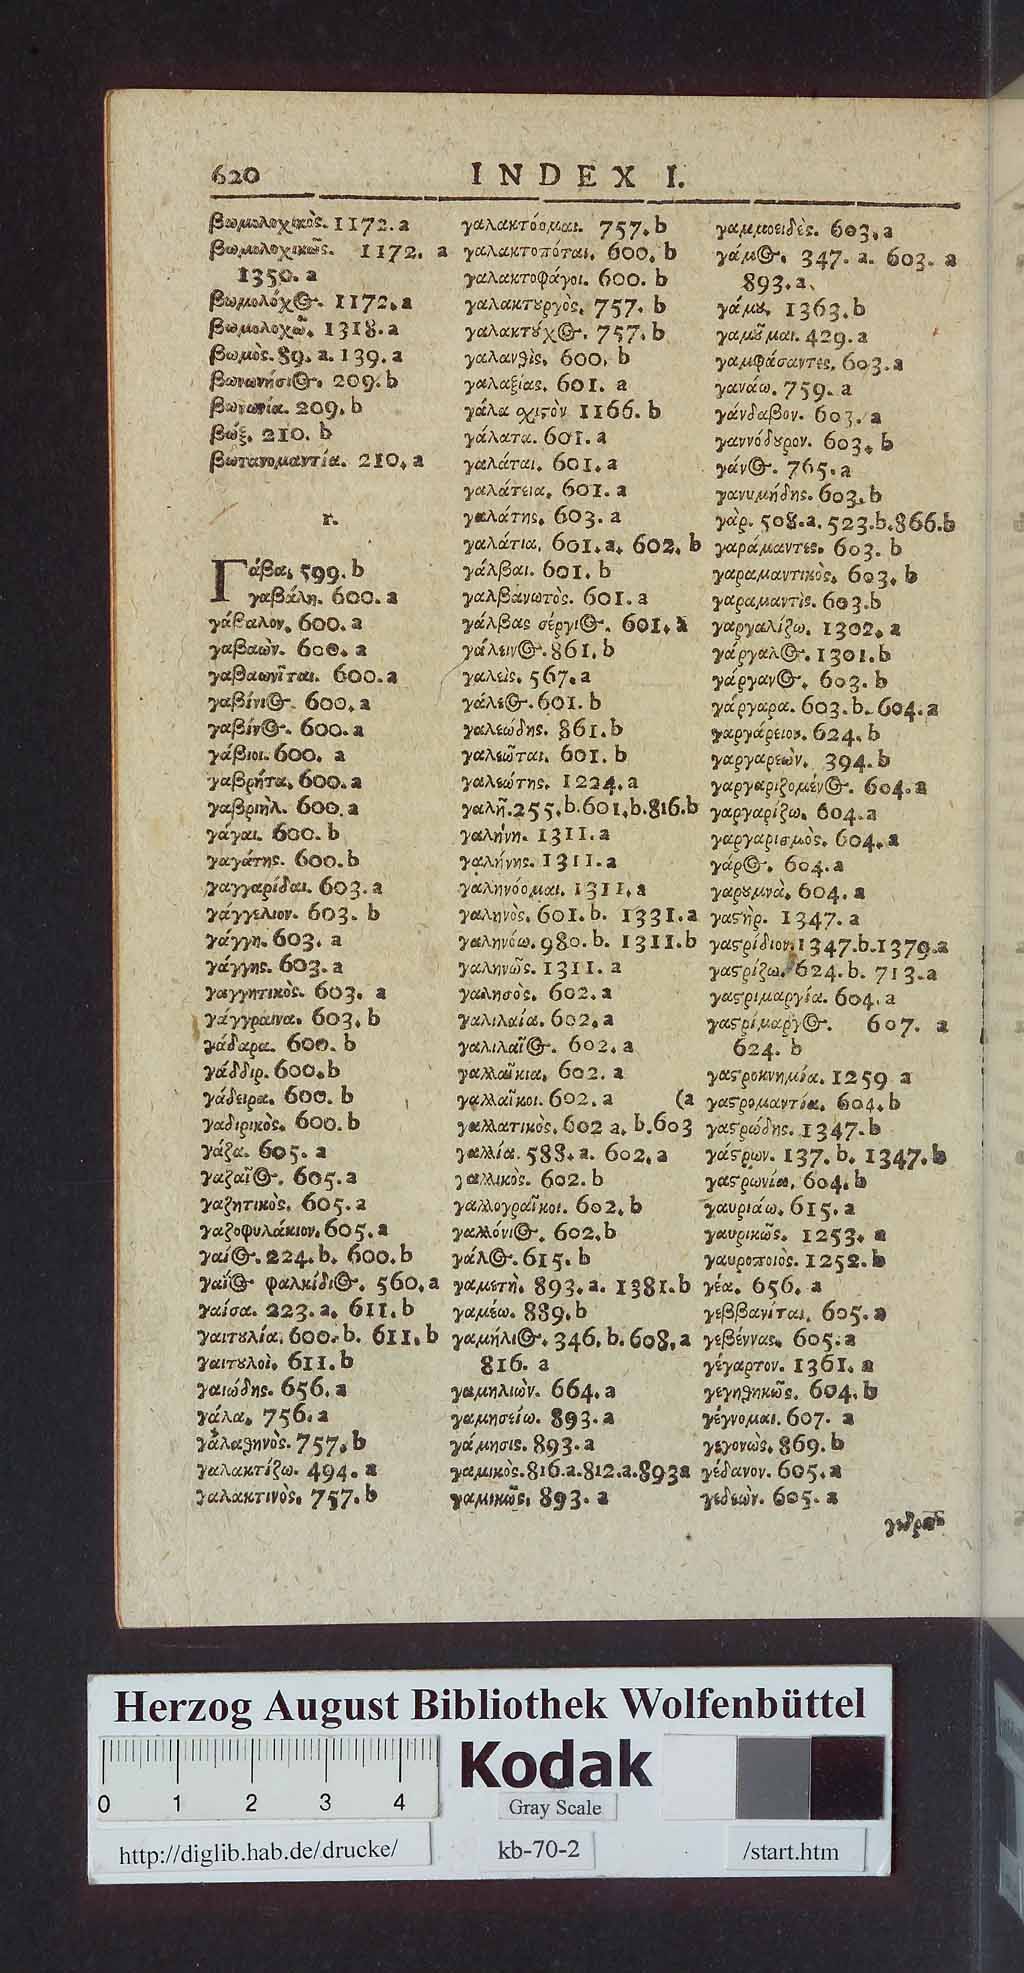 620 INDEX I.
βωμολοχικὸς. 1172. a
βωμολοχικῶς. 1172. a
1350. a
βωμολόχος. 1172. a
βωμολοχῶ. 1318. a
βωμὸς. 89. a. 139. a
βωνωνήσιος. 209. b
βωνωνία. 209. b
βώξ. 210. b
βωτανομαντία. 210. a
Γ.
Γάβα. 599. b
γαβάλη. 600. a
γάβαλον. 600. a
γαβαὼν. 600. a
γαβαωνῖται. 600. a
γαβίνιος. 600. a
γαβῖνος. 600. a
γάβιοι. 600. a
γαβρῆτα. 600. a
γαβριὴλ. 600. a
γάγαι. 600. b
γαγάτης. 600. b
γαγγαρίδαι. 603. a
γάγγελιον. 603. b
γάγγη. 603. a
γάγγης. 603. a
γαγγητικὸς. 603. a
γάγγραινα. 603. b
γάδαρα. 600. b
γάδδιρ. 600. b
γάδειρα. 600. b
γαδιρικὸς. 600. b
γάζα. 605. a
γαζαῖος. 605. a
γαζητικὸς. 605. a
γαζοφυλάκιον. 605. a
γαίος. 224. b. 600. b
γαίος φαλκίδιος. 560. a
γαίσα. 223. a. 611. b
γαιτυλία. 600. b. 611. b
γαιτυλοὶ. 611. b
γαιώδης. 656. a
γάλα. 756. a
γαλαθηνὸς. 757. b
γαλακτίζω. 494. a
γαλακτινὸς. 757. b
γαλακτόομαι. 757. b
γαλακτοπόται. 600. b
γαλακτοφάγοι. 600. b
γαλακτουργὸς. 757. b
γαλακτοῦχος. 757. b
γαλανθὶς. 600. b
γαλαξίας. 601. a
γάλα σχιστὸν 1166. b
γάλατα. 601. a
γαλάται. 601. a
γαλάτεια. 601. a
γαλάτης. 603. a
γαλάτια. 601. a. 602. b
γάλβαι. 601. b
γαλβάνωτος. 601. a
γάλβας σέργιος. 601. a
γάλεινος. 861. b
γαλεὶς. 567. a
γάλεος. 601. b
γαλεώδης. 861. b
γαλεῶται. 601. b
γαλεώτης. 1224. a
γαλῆ. 255. b. 601. b. 816. b
γαλήνη. 1311. a
γαλήνης. 1311. a
γαληνόομαι. 1311. a
γαληνὸς. 601. b. 1331. a
γαληνόω. 980. b. 1311. b
γαληνῶς. 1311. a
γαλησὸς. 602. a
γαλιλαία. 602. a
γαλιλαῖος. 602. a
γαλλαῖκια. 602. a
γαλλαῖκοι. 602. a (a
γαλλατικὸς. 602 a. b. 603
γαλλία. 588. a. 602. a
γαλλικὸς. 602. b
γαλλογραῖκοι. 602. b
γαλλόνιος. 602. b
γάλος. 615. b
γαμετὴ. 893. a. 1381. b
γαμέω. 889. b
γαμήλιος. 346. b. 608. a
816. a
γαμηλιὼν. 664. a
γαμησείω. 893. a
γάμησις. 893. a
γαμικὸς. 816. a. 812. a. 893 a
γαμικῶς. 893. a
γαμμοειδὲς. 603. a
γάμος. 347. a. 603. a
893. a.
γάμου. 1363. b
γαμοῦμαι. 429. a
γαμφάσαντες. 603. a
γανάω. 759. a
γάνδαβον. 603. a
γαννόδουρον. 603. b
γάνος. 765. a
γανυμήδης. 603. b
γὰρ. 508. a. 523. b. 866. b
γαράμαντες. 603. b
γαραμαντικὸς. 603. b
γαραμαντὶς. 603. b
γαργαλίζω. 1302. a
γάργαλος. 1301. b
γάργανος. 603. b
γάργαρα. 603. b. 604. a
γαργάρειον. 624. b
γαργαρεὼν. 394. b
γαργαριζομένος. 604. a
γαργαρίζω. 604. a
γαργαρισμὸς. 604. a
γάρος. 604. a
γαρουμνὰ. 604. a
γαστὴρ. 1347. a
γαστρίδιον. 1347. b. 1379. a
γαστρίζω. 624. b. 713. a
γαστριμαργία. 604. a
γαστρίμαργος. 607. a
624. b
γαστροκνημία. 1259 a
γαστρομαντία. 604. b
γαστρώδης. 1347. b
γάστρων. 137. b. 1347. b
γαστρωνία. 604. b
γαυριάω. 615. a
γαυρικῶς. 1253. a
γαυροποιὸς. 1252. b
γέα. 656. a
γεββανίται. 605. a
γεβέννας. 605. a
γέγαρτον. 1361. a
γεγηθηκῶς. 604. b
γέγνομαι. 607. a
γεγονὼς. 869. b
γέδανον. 605. a
γεδεὼν. 605. a
Herzog August Bibliothek Wolfenbüttel
0 1 2 3 4
Kodak
Gray Scale
http://diglib.hab.de/drucke/ kb-70-2 /start.htm